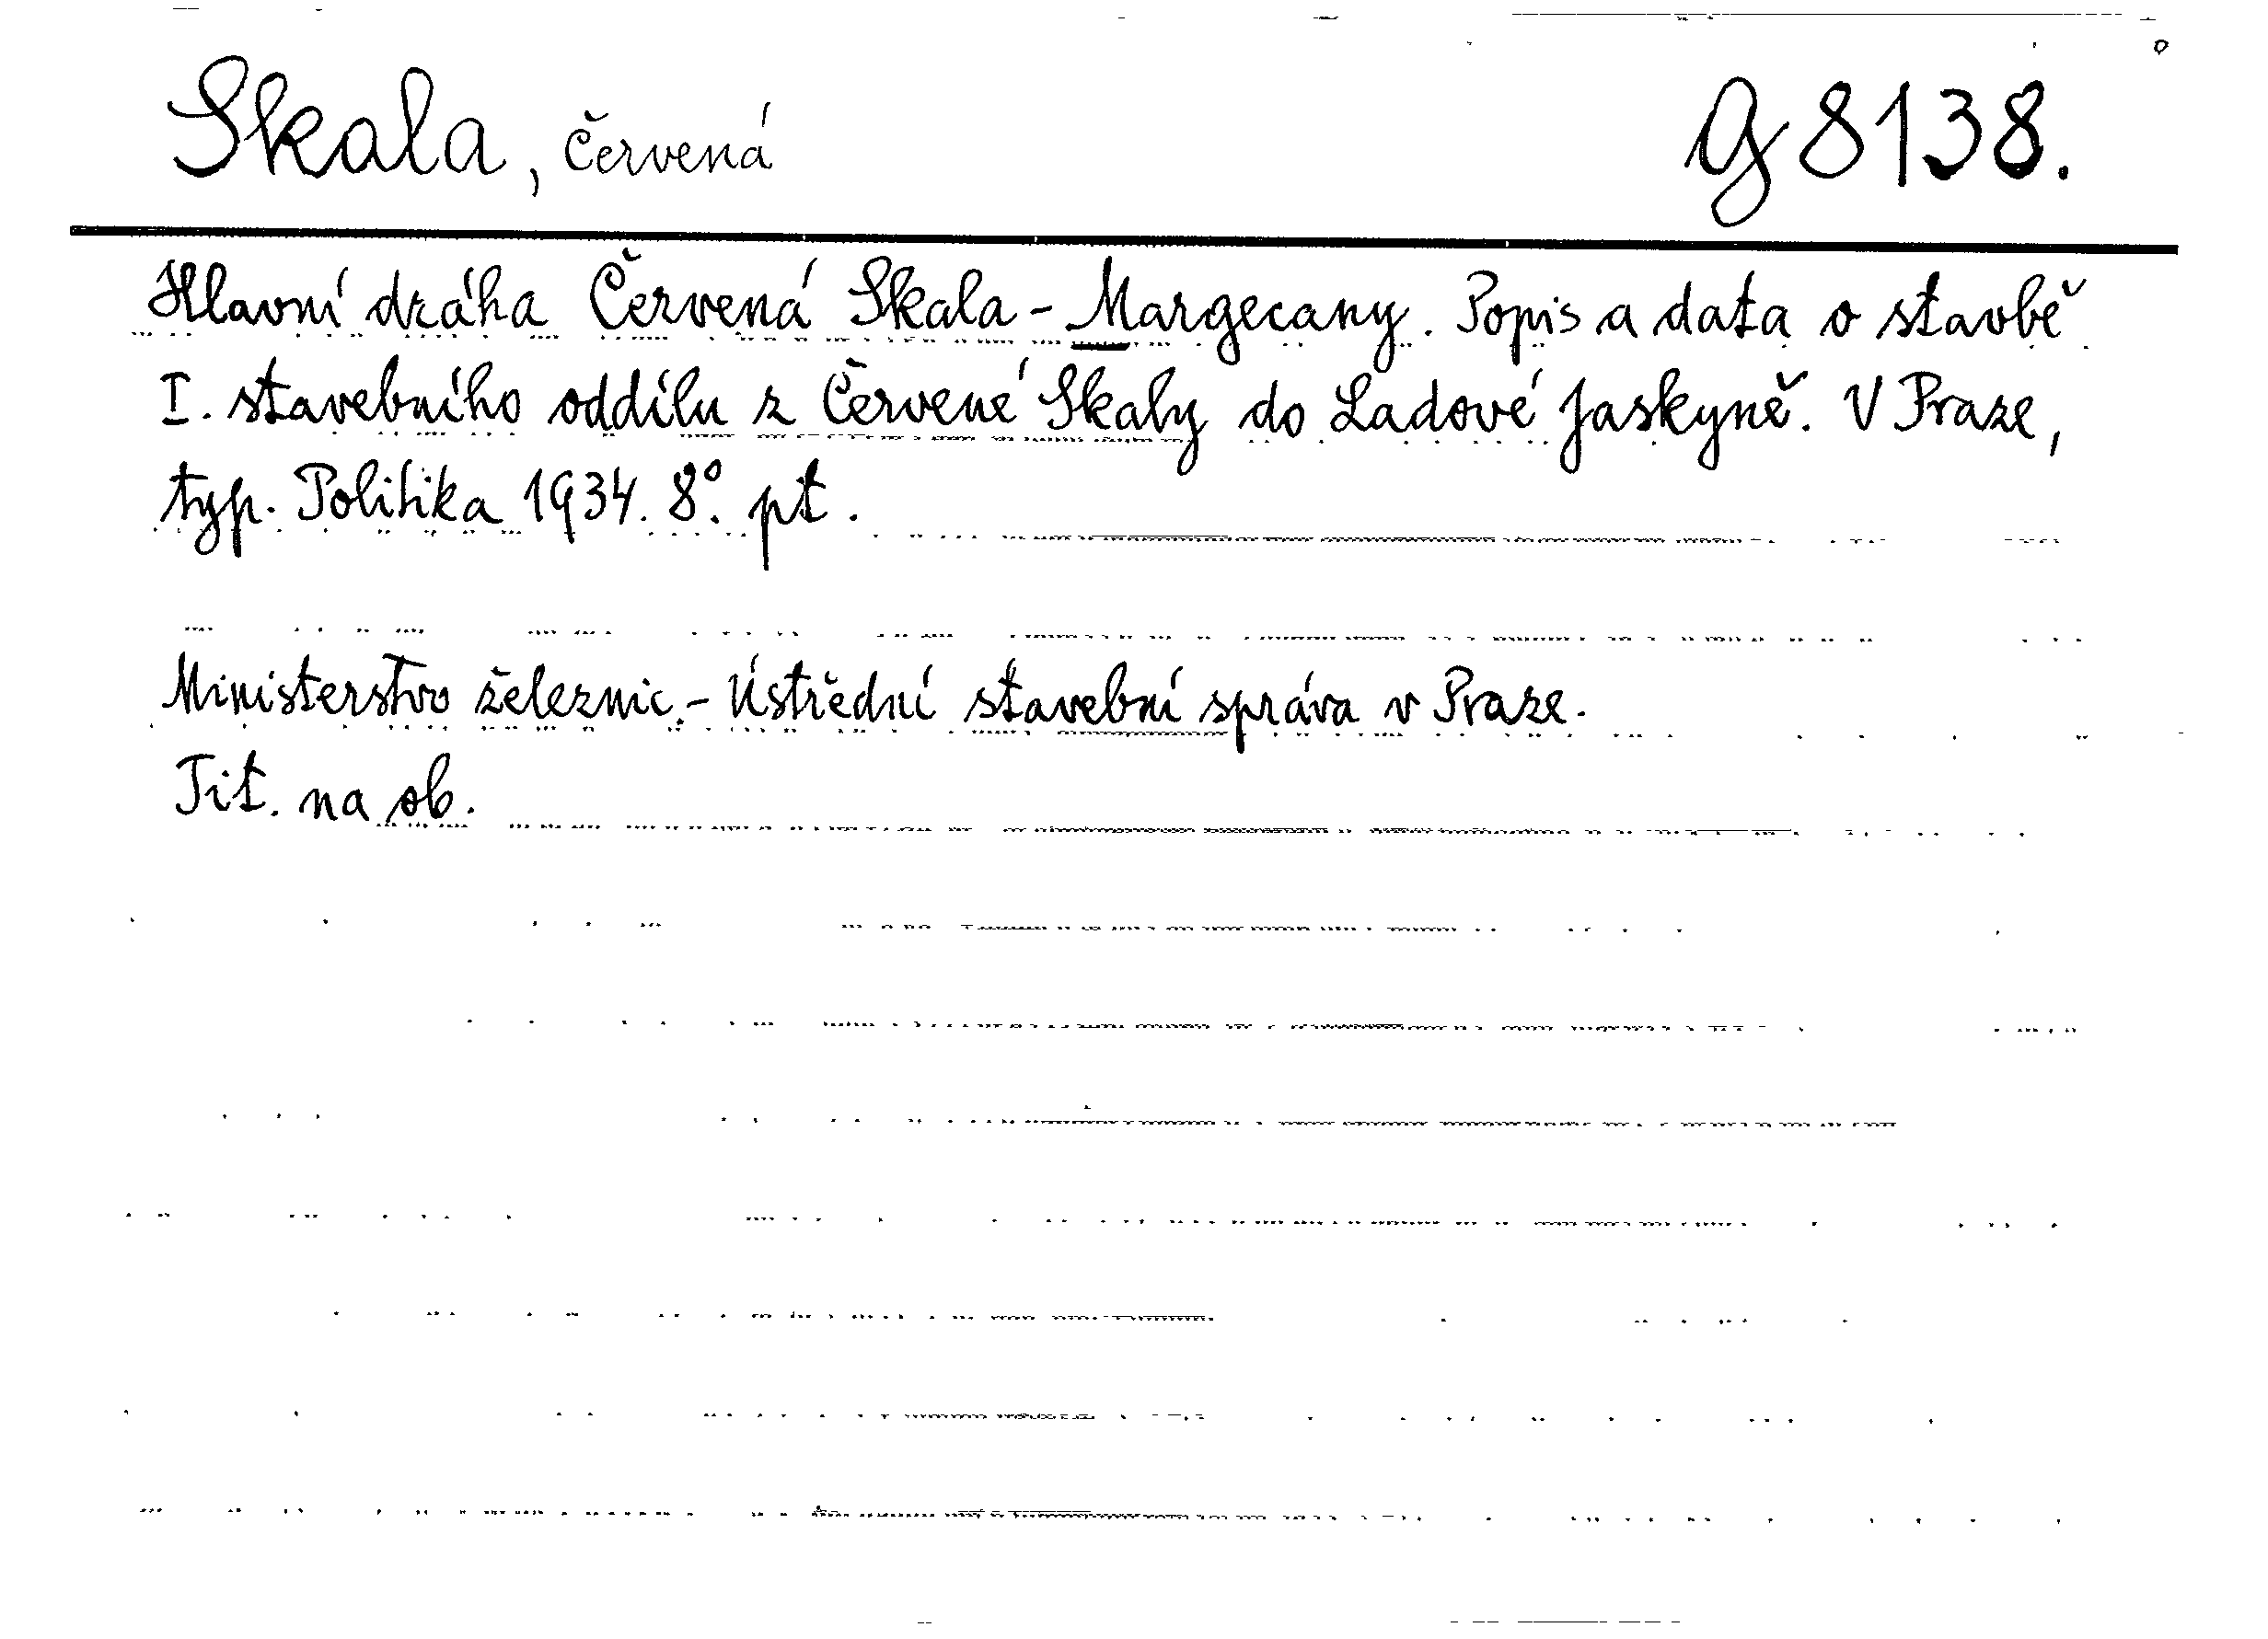 Skala, červená g 8138.
Hlavní dráha Červená Skala - Margecany. Popis a data o stavbě
I. stavebního oddílu z Červené Skaly do Ladové Jaskyně. V Praze,
typ. Politika 1934. 8°. pt.
Ministerstvo železnic. - Ústřední stavební správa v Praze.
Tit. na ob.